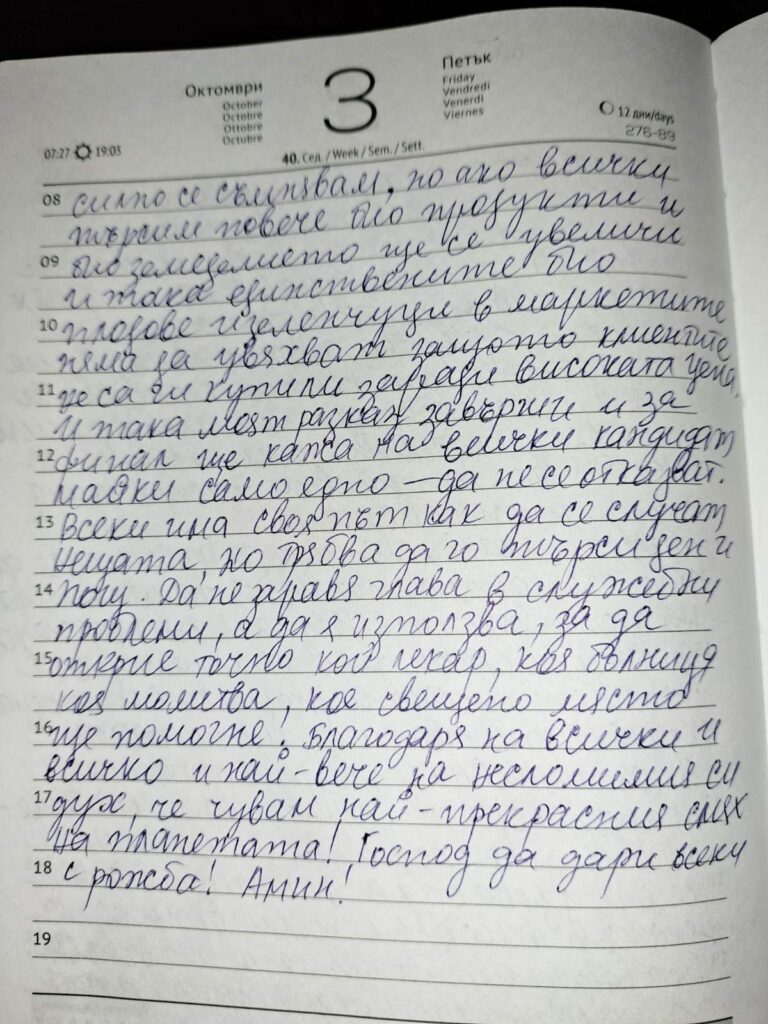 Октомври
October
Octobre
Ottobre
Octubre
3
Петък
Friday
Vendredi
Venerdi
Viernes
12 дни/days
276-89
07:27 19:03
40. Сед. / Week / Sem. / Sett.
08 силно се съмнявам, но ако всички
търсим повече био продукти и
09 био земеделието ще се увеличи
и така единствените био
10 плодове и зеленчуци в маркетите
няма да увяхват защото клиентите
11 не са ги купили заради високата цена.
И така моят разказ завърши и за
12 финал ще кажа на всички кандидат
майки само едно – да не се отказват.
13 Всеки има своя път как да се случат
нещата, но трябва да го търси ден и
14 нощ. Да не заравя глава в служебни
проблеми, а да я използва, за да
15 открие точно кой лекар, коя болница
коя молитва, кое свещено място
16 ще помогне. Благодаря на всички и
всичко и най-вече на несломимия си
17 дух, че чувам най-прекрасния смях
на планетата! Господ да дари всеки
18 с рожба! Амин!
19